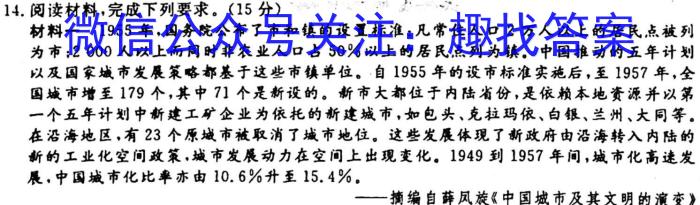 14.阅读材料,完成下列要求。(15分)
微信公众号关注:趣找答案
材料 1955年,国务院公布了市和镇的设置标准,凡常住人口2万人以上的居民点被列
为市,2 000人以上而同时非农业人口占50%以上的居民点列为镇。中国推动的五年计划
以及国家城市发展策略都基于这些市镇单位。自1955年的设市标准实施后,至1957年,全
国城市增至179个,其中71个是新设的。新市大都位于内陆省份,是依赖本地资源并以第
一个五年计划中新建工矿企业为依托的新建城市,如包头、克拉玛依、白银、兰州、大同等。
在沿海地区,有23个原城市被取消了城市地位。这些发展体现了新政府由沿海转入内陆的
新的工业化空间政策,城市发展动力在空间上出现变化。1949到1957年间,城市化高速发
展,中国城市化比率亦由10.6%升至15.4%。
——摘编自薛凤旋《中国城市及其文明的演变》